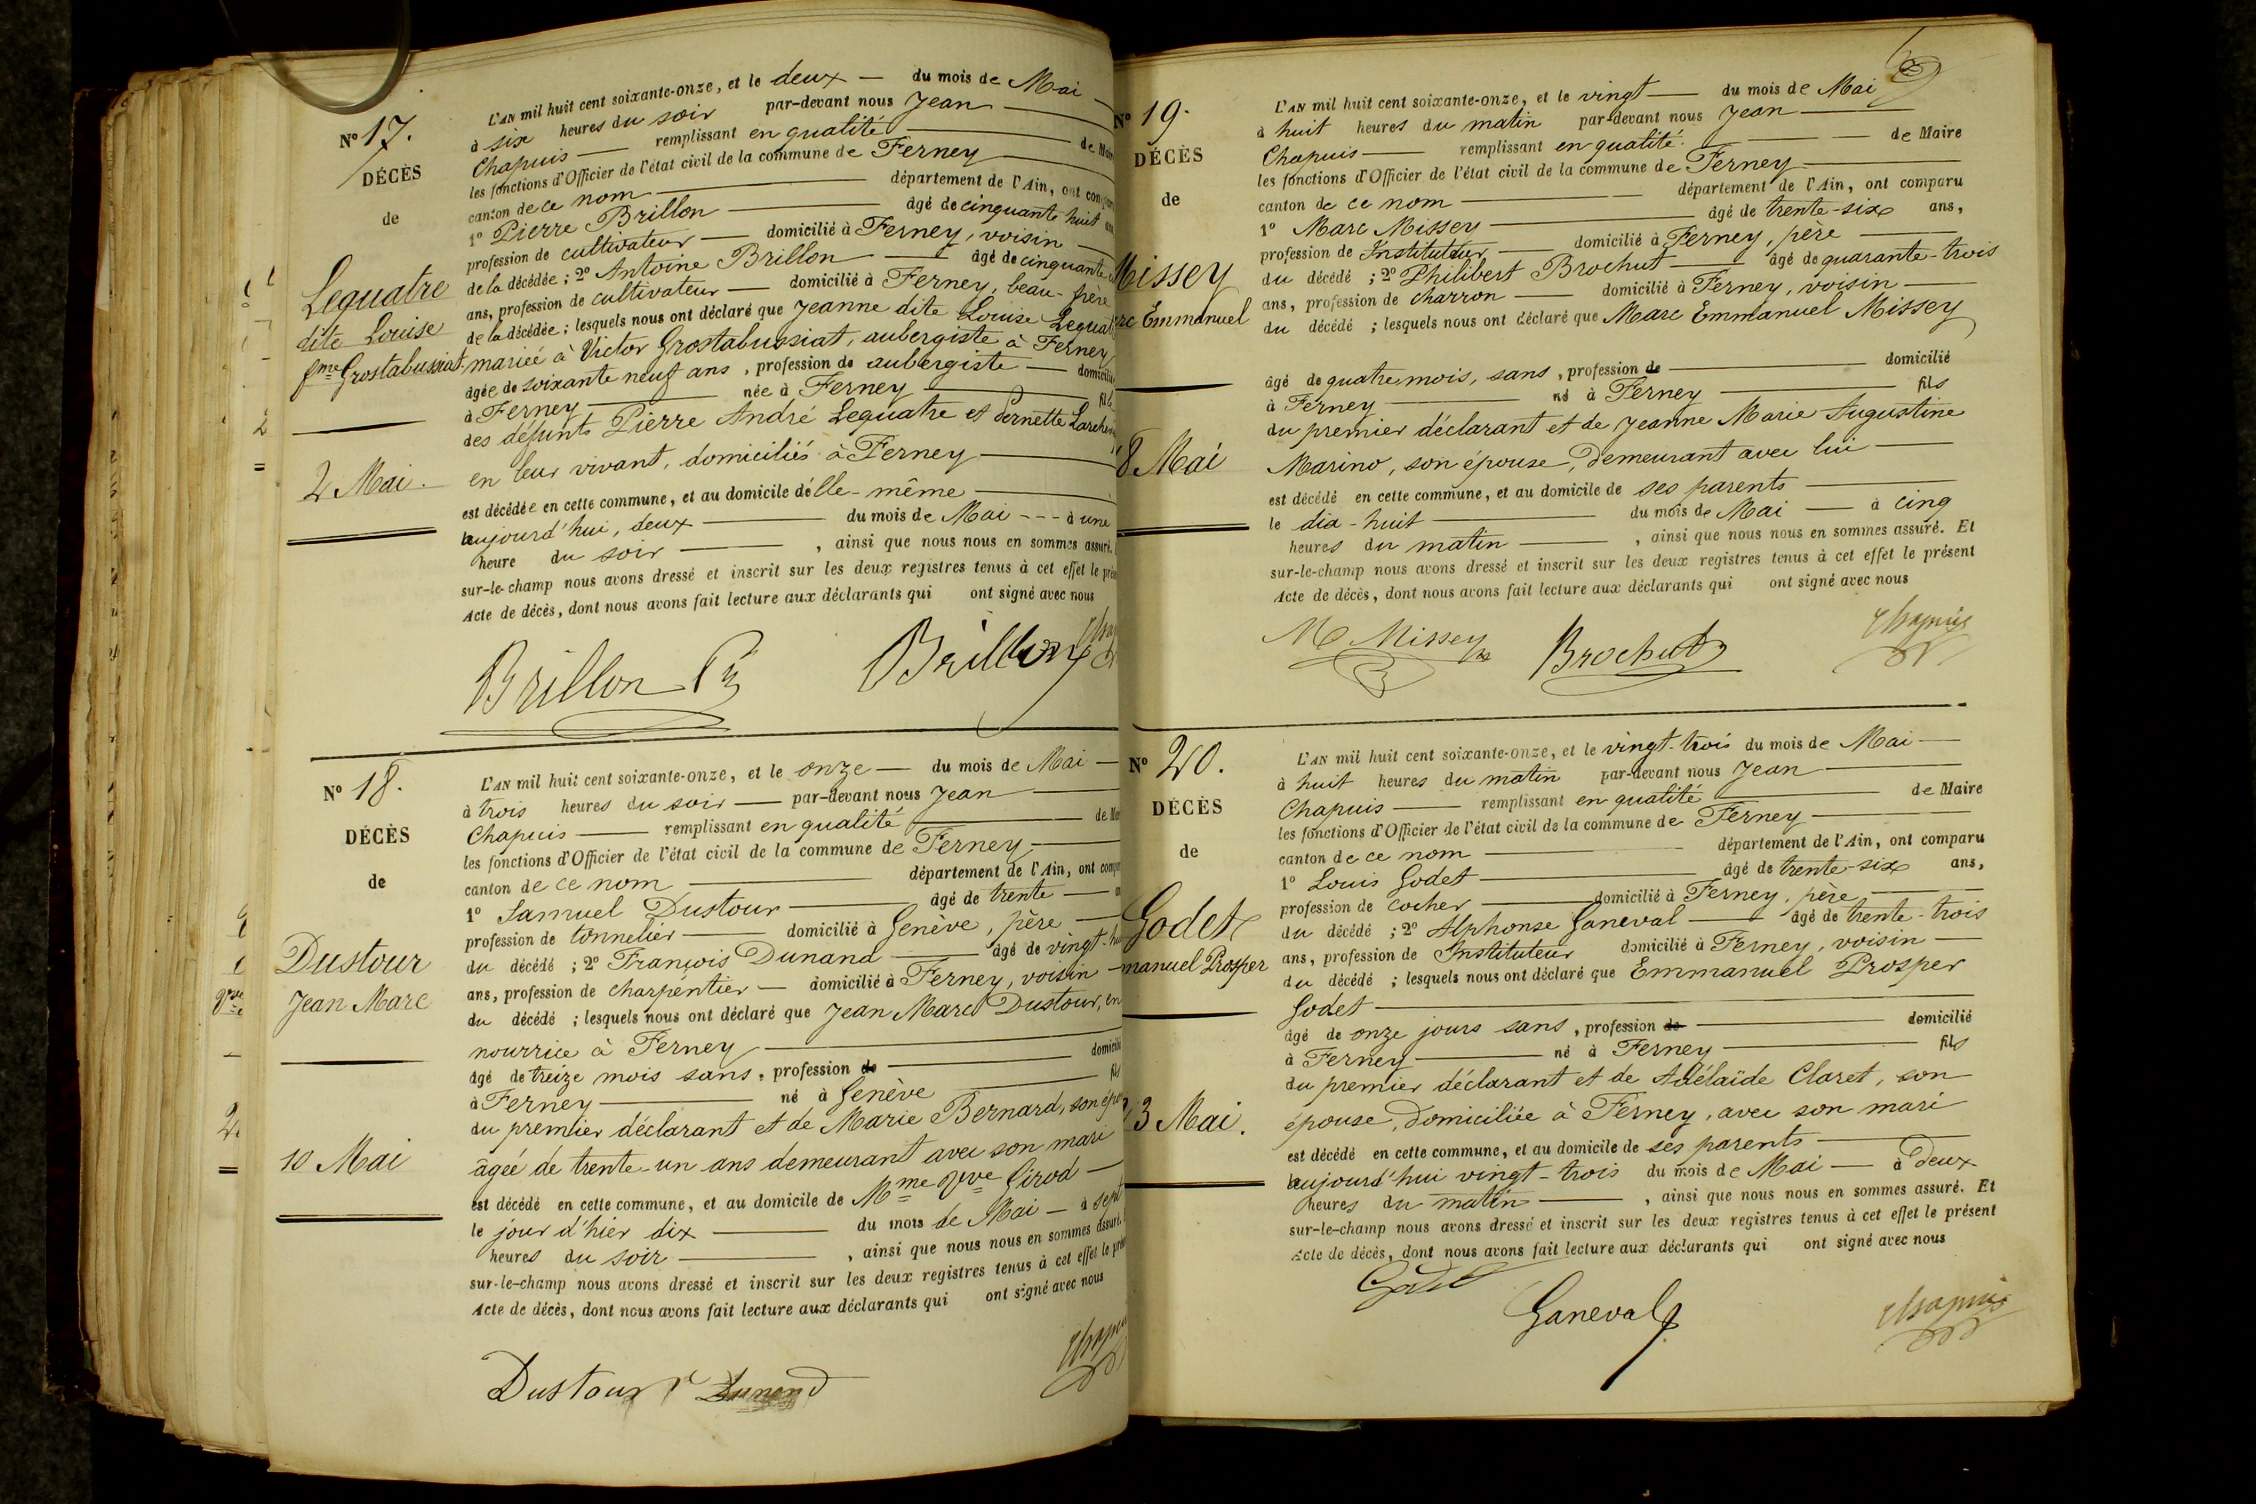 Nº 17.
DÉCÈS
de
Lequatre
dite Louise
fme Grostabussiat
2 Mai.
L'AN mil huit cent soixante-onze, et le deux — du mois de Mai —
à six heures du soir par-devant nous Jean —
Chapuis — remplissant en qualité — de Maire
les fonctions d'Officier de l'état civil de la commune de Ferney —
canton de ce nom — département de l'Ain, ont comparu
1º Pierre Brillon — âgé de cinquante huit ans
profession de cultivateur — domicilié à Ferney, voisin —
de la décédée ; 2º Antoine Brillon — âgé de cinquante
ans, profession de cultivateur — domicilié à Ferney, beau-frère
de la décédée ; lesquels nous ont déclaré que Jeanne dite Louise Lequat
mariée à Victor Grostabussiat, aubergiste à Ferney
âgée de soixante neuf ans, profession de aubergiste — domicilié
à Ferney — née à Ferney — fille
des défunts Pierre André Lequatre et Pernette
en leur vivant, domiciliés à Ferney —
est décédée en cette commune, et au domicile d'elle-même —
aujourd'hui, deux — du mois de Mai --- à une
heure du soir — , ainsi que nous nous en sommes assuré.
sur-le-champ nous avons dressé et inscrit sur les deux registres tenus à cet effet le présent
Acte de décès, dont nous avons fait lecture aux déclarants qui ont signé avec nous
Brillon Brillon
Nº 18.
DÉCÈS
de
Dustour
Jean Marc
10 Mai
L'AN mil huit cent soixante-onze, et le onze — du mois de Mai —
à trois heures du soir — par-devant nous Jean —
Chapuis — remplissant en qualité — de Maire
les fonctions d'Officier de l'état civil de la commune de Ferney —
canton de ce nom — département de l'Ain, ont comparu
1º Samuel Dustour — âgé de trente —
profession de tonnelier — domicilié à Genève, père —
du décédé ; 2º François Dunand — âgé de vingt-
ans, profession de charpentier — domicilié à Ferney, voisin —
du décédé ; lesquels nous ont déclaré que Jean Marc Dustour, en
nourrice à Ferney —
âgé de treize mois sans, profession de — domicilié
à Ferney — né à Genève — fils
du premier déclarant et de Marie Bernard, son épouse
âgée de trente-un ans demeurant avec son mari
est décédé en cette commune, et au domicile de Mme Vve Girod —
le jour d'hier dix — du mois de Mai — à sept
heures du soir — , ainsi que nous nous en sommes assuré.
sur-le-champ nous avons dressé et inscrit sur les deux registres tenus à cet effet le présent
Acte de décès, dont nous avons fait lecture aux déclarants qui ont signé avec nous
Dustour Dunand
Nº 19.
DÉCÈS
de
Missey
rc Emmanuel
8 Mai
L'AN mil huit cent soixante-onze, et le vingt — du mois de Mai
à huit heures du matin par-devant nous Jean —
Chapuis — remplissant en qualité — de Maire
les fonctions d'Officier de l'état civil de la commune de Ferney —
canton de ce nom — département de l'Ain, ont comparu
1º Marc Missey — âgé de trente-six ans,
profession de Instituteur — domicilié à Ferney, père —
du décédé ; 2º Philibert Brochut — âgé de quarante-trois
ans, profession de charron — domicilié à Ferney, voisin —
du décédé ; lesquels nous ont déclaré que Marc Emmanuel Missey
âgé de quatre mois, sans, profession de — domicilié
à Ferney — né à Ferney — fils
du premier déclarant et de Jeanne Marie Augustine
Marino, son épouse, demeurant avec lui —
est décédé en cette commune, et au domicile de ses parents —
le dix-huit — du mois de Mai — à cinq
heures du matin — , ainsi que nous nous en sommes assuré. Et
sur-le-champ nous avons dressé et inscrit sur les deux registres tenus à cet effet le présent
Acte de décès, dont nous avons fait lecture aux déclarants qui ont signé avec nous
Missey Brochut Chapuis
Nº 20.
DÉCÈS
de
Godet
manuel Prosper
23 Mai.
L'AN mil huit cent soixante-onze, et le vingt-trois du mois de Mai —
à huit heures du matin par-devant nous Jean —
Chapuis — remplissant en qualité — de Maire
les fonctions d'Officier de l'état civil de la commune de Ferney —
canton de ce nom — département de l'Ain, ont comparu
1º Louis Godet — âgé de trente-six ans,
profession de cocher — domicilié à Ferney, père —
du décédé ; 2º Alphonse Ganeval — âgé de trente-trois
ans, profession de Instituteur domicilié à Ferney, voisin —
du décédé ; lesquels nous ont déclaré que Emmanuel Prosper
Godet —
âgé de onze jours sans, profession de — domicilié
à Ferney — né à Ferney — fils
du premier déclarant et de Adélaïde Claret, son
épouse, domiciliée à Ferney, avec son mari
est décédé en cette commune, et au domicile de ses parents —
aujourd'hui vingt-trois du mois de Mai — à deux
heures du matin — , ainsi que nous nous en sommes assuré. Et
sur-le-champ nous avons dressé et inscrit sur les deux registres tenus à cet effet le présent
Acte de décès, dont nous avons fait lecture aux déclarants qui ont signé avec nous
Godet Ganeval Chapuis